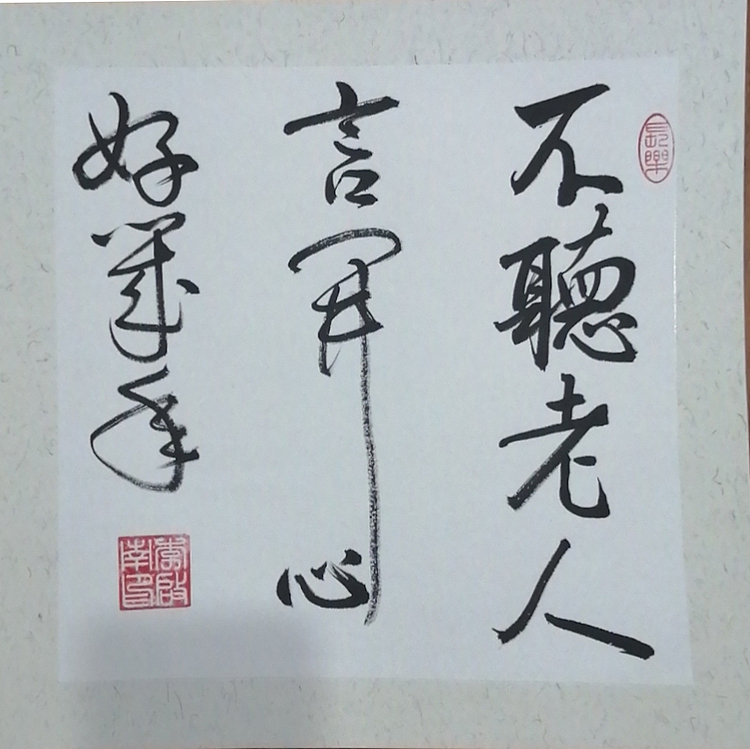 長樂
不聽老人
言開心
好幾年